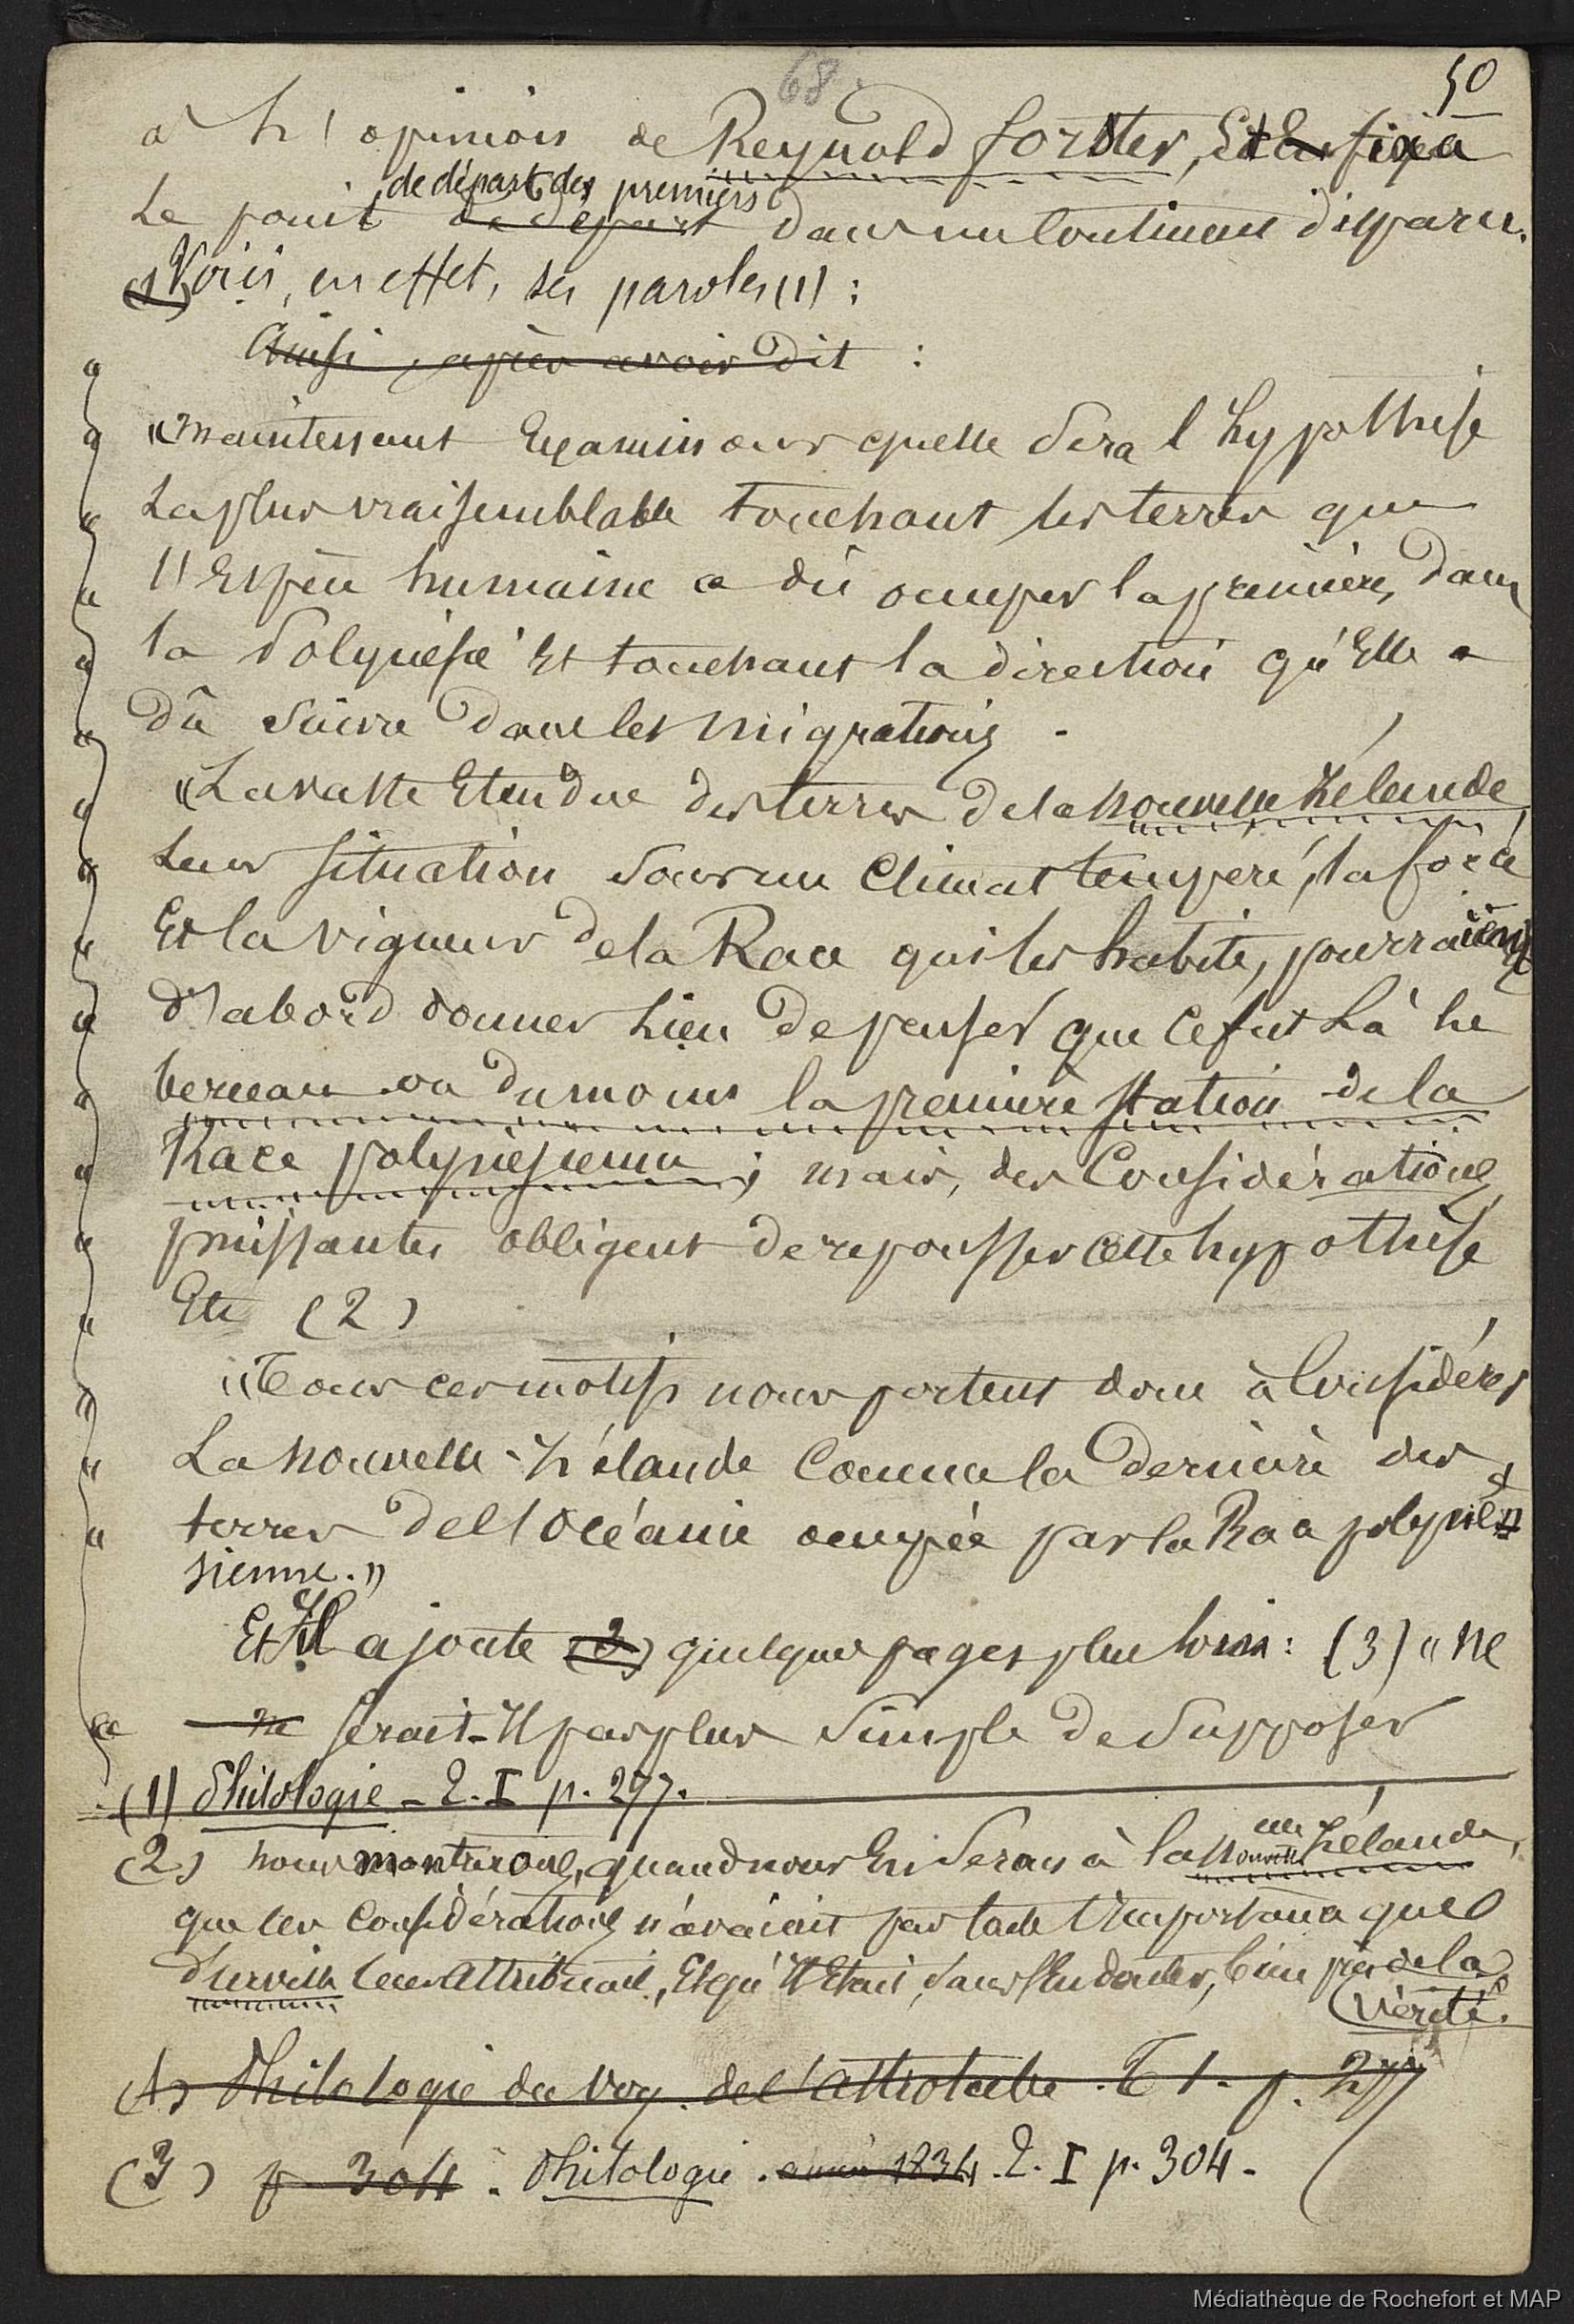 68
50
à l'opinion de Reynold forster, Et En fixa
de départ des premiers
Le point de départ dans un Continent disparu.
(1) Voici, en effet, ses paroles (1) :
Ainsi, après avoir dit :
"maintenant Examinons quelle sera l'hypothèse
" La plus vraisemblable touchant les terres que
" l'Espèce humaine a dû occuper la première, dans
" la Polynésie Et touchant la direction qu'Elle a
" dû suivre dans les migrations.
" "La vaste Etendue des terres de la nouvelle Zélande,
" Leur situation sous un Climat tempéré, la force
" Et la vigueur de la Race qui les habite, pourraient
" d'abord donner Lieu de penser que Ce fut Là le
" berceau ou du moins la première station de la
" Race polynésienne ; mais, des Considérations
" puissantes obligent de repousser cette hypothèse
" Etc (2)
" "Tous ces motifs nous portent donc à Considérer
" La nouvelle-Zélande Comme la dernière des
" terres de l'Océanie occupée par la Race polyné-
sienne."
Et Il ajoute (2) quelques pages plus loin : (3) "Ne
" ne serait-Il pas plus simple de supposer
(1) Philologie - T. I p. 277.
(2) nous montrerons, quand nous En serons à la Nouvelle Zélande,
que ces Considérations n'avaient pas toute l'Importance que
d'urville leur attribuait, Et qu'Il Etait, sans s'En douter, bien près de la
vérité.
(1) Philologie du Voy. de l'astrolabe. T 1. p. 277
(3) p 304. Philologie. année 1834. T. I p. 304.
Médiathèque de Rochefort et MAP